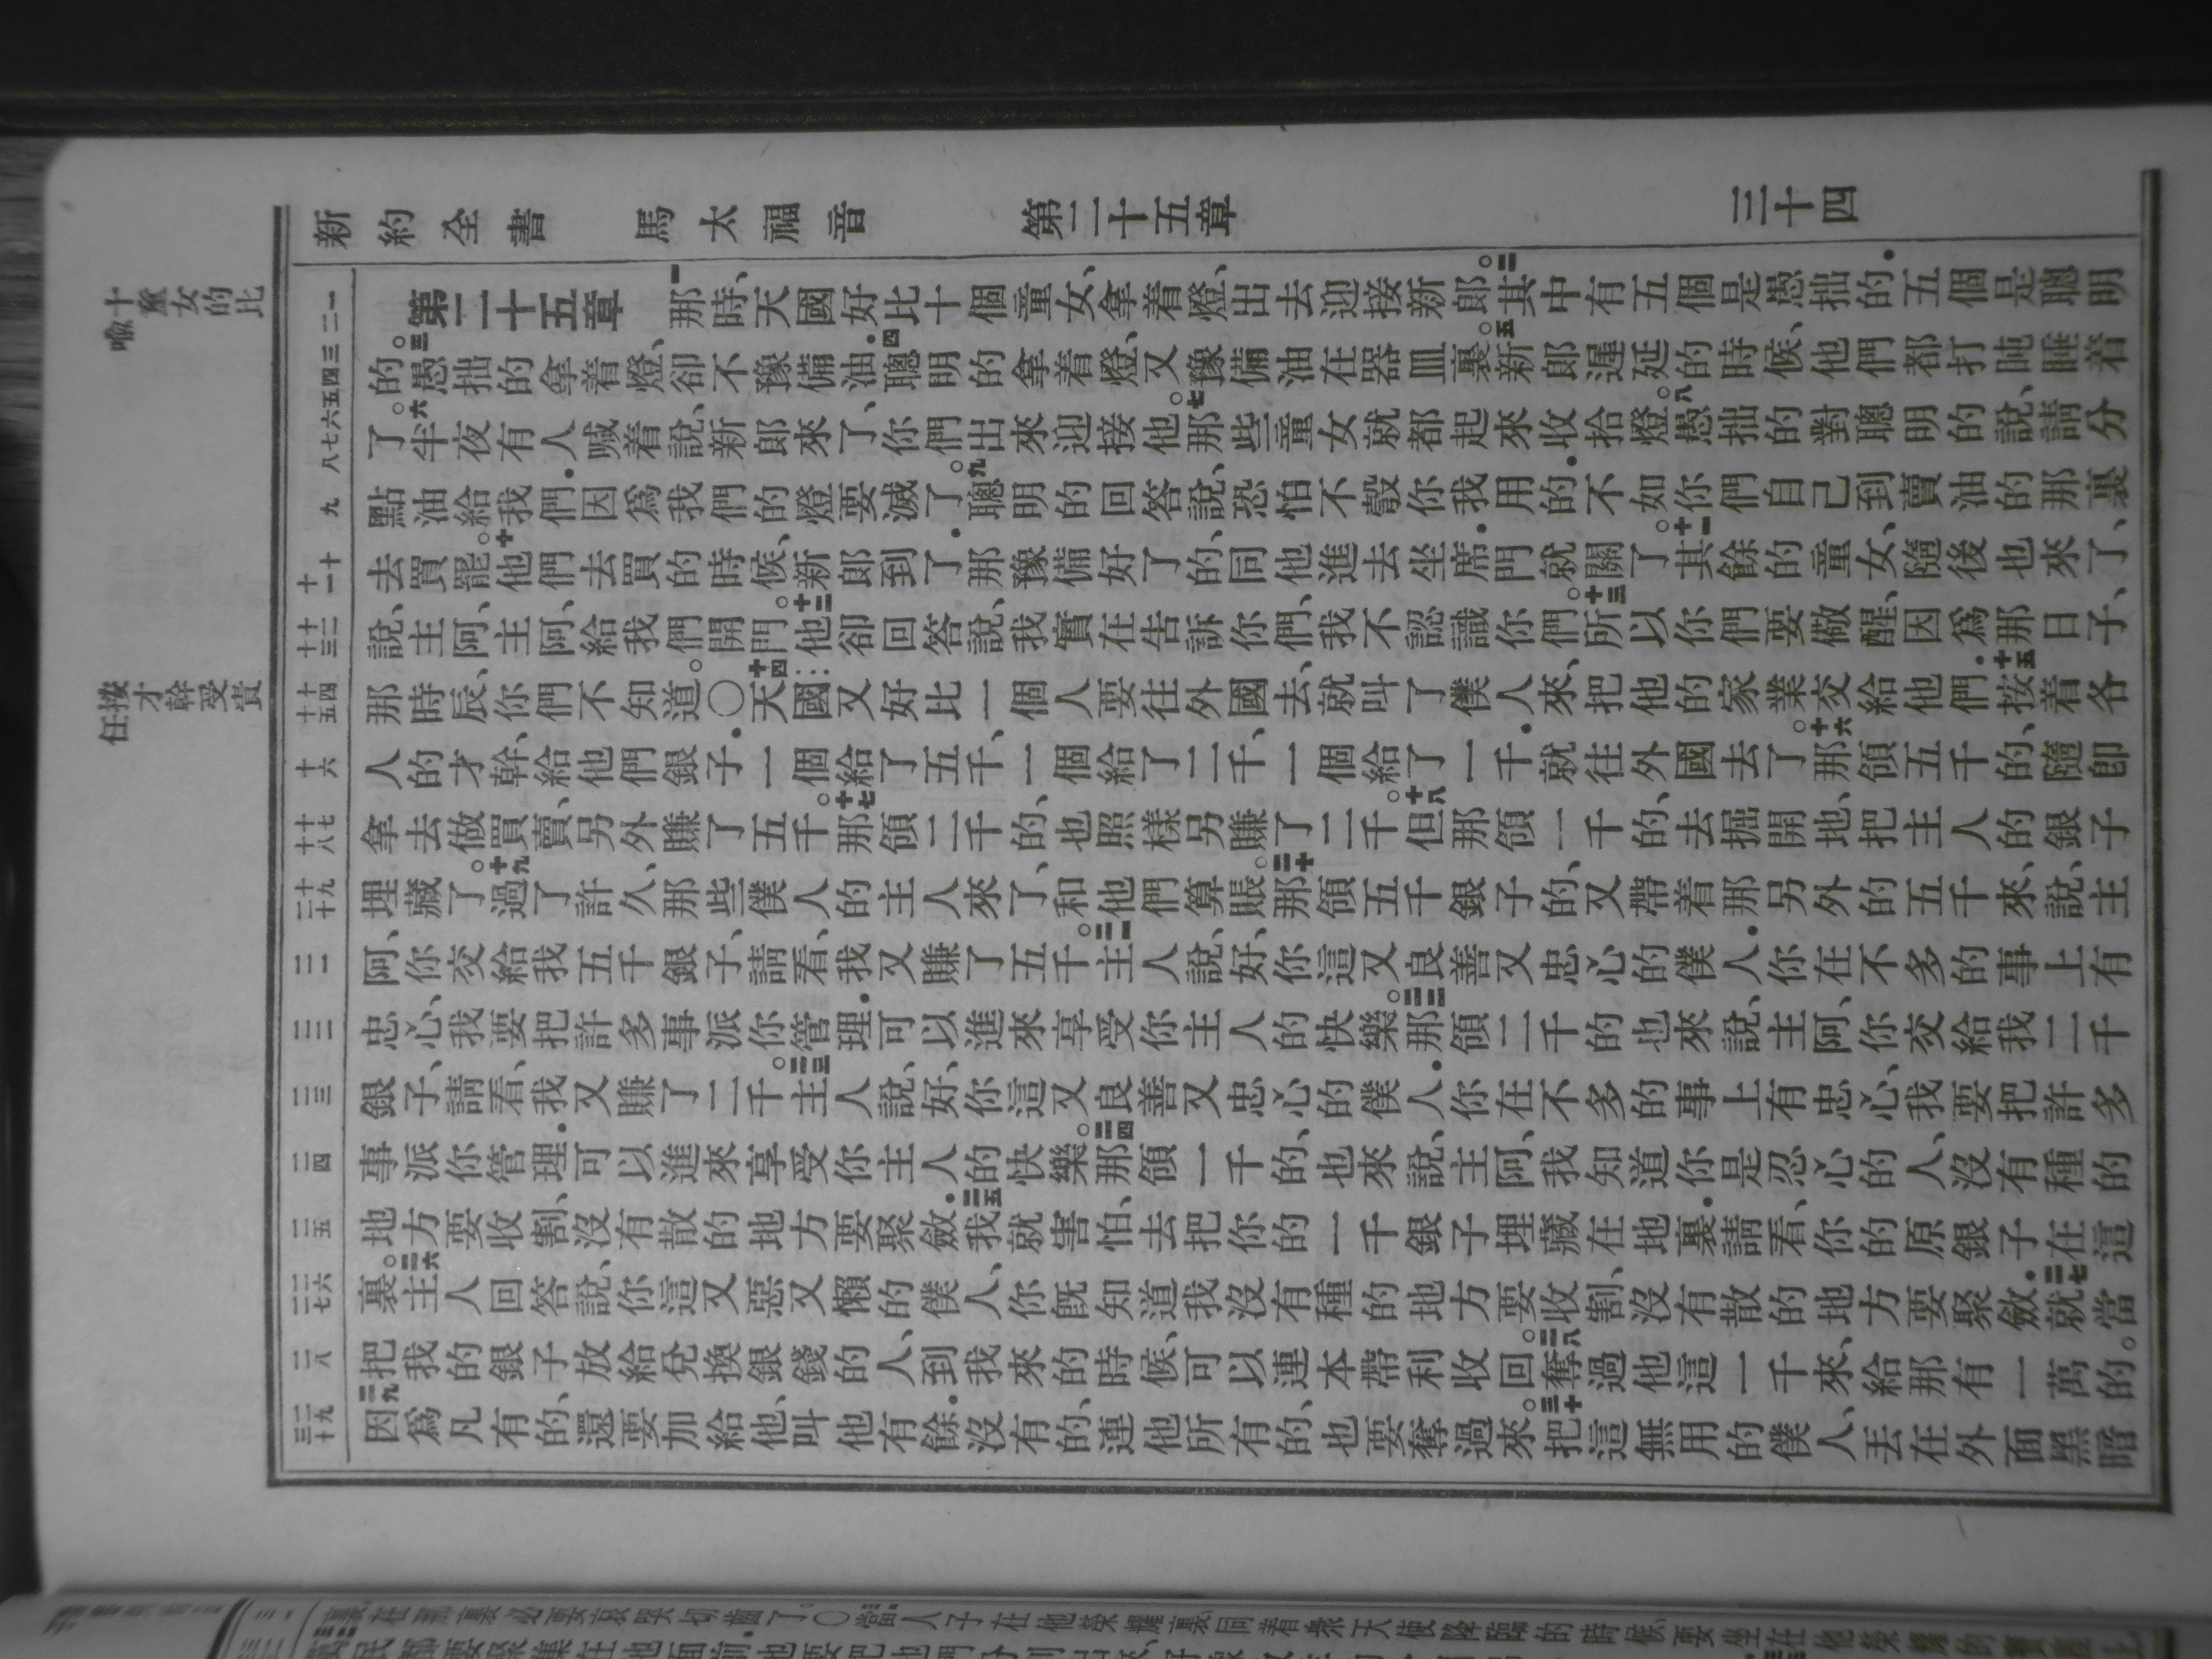 新約全書 馬太福音 第二十五章 三十四
十童女的比喩
按才幹受責任
一 二 三 四 五 六 七 八 九 十 十一 十二 十三 十四 十五 十六 十七 十八 十九 二十 二一 二二 二三 二四 二五 二六 二七 二八 二九 三十
第二十五章 一那時、天國好比十個童女、拿着燈、出去迎接新郎。二其中有五個是愚拙的．五個是聰明
的。三愚拙的拿着燈、卻不豫備油．四聰明的拿着燈、又豫備油在器皿裏。五新郎遲延的時候、他們都打盹睡着
了。六半夜有人喊着說、新郎來了、你們出來迎接他。七那些童女就都起來收拾燈。八愚拙的對聰明的說、請分
點油給我們．因爲我們的燈要滅了。九聰明的回答說、恐怕不彀你我用的．不如你們自己到賣油的那裏
去買罷。十他們去買的時候、新郎到了．那豫備好了的、同他進去坐席．門就關了。十一其餘的童女、隨後也來了、
說、主阿、主阿、給我們開門。十二他卻回答說、我實在告訴你們、我不認識你們。十三所以你們要儆醒、因爲那日子、
那時辰、你們不知道。〇十四天國又好比一個人要往外國去、就叫了僕人來、把他的家業交給他們．十五按着各
人的才幹、給他們銀子．一個給了五千、一個給了二千、一個給了一千．就往外國去了。十六那領五千的、隨卽
拿去做買賣、另外賺了五千。十七那領二千的、也照樣另賺了二千。十八但那領一千的、去掘開地、把主人的銀子
埋藏了。十九過了許久、那些僕人的主人來了、和他們算賬。二十那領五千銀子的、又帶着那另外的五千來、說、主
阿、你交給我五千銀子、請看、我又賺了五千。二一主人說、好、你這又良善又忠心的僕人．你在不多的事上有
忠心、我要把許多事派你管理．可以進來享受你主人的快樂。二二那領二千的也來說、主阿、你交給我二千
銀子、請看、我又賺了二千。二三主人說、好、你這又良善又忠心的僕人．你在不多的事上有忠心、我要把許多
事派你管理．可以進來享受你主人的快樂。二四那領一千的、也來說、主阿、我知道你是忍心的人、沒有種的
地方要收割、沒有散的地方要聚斂．二五我就害怕、去把你的一千銀子埋藏在地裏．請看、你的原銀子在這
裏。二六主人回答說、你這又惡又懶的僕人、你旣知道我沒有種的地方要收割、沒有散的地方要聚斂．二七就當
把我的銀子放給兌換銀錢的人、到我來的時候、可以連本帶利收回。二八奪過他這一千來、給那有一萬的。
二九因爲凡有的、還要加給他、叫他有餘．沒有的、連他所有的、也要奪過來。三十把這無用的僕人、丟在外面黑暗
裏．在那裏必要哀哭切齒了。〇當人子在他榮耀裏同着衆天使降臨的時候、要坐在他榮耀的寶座上